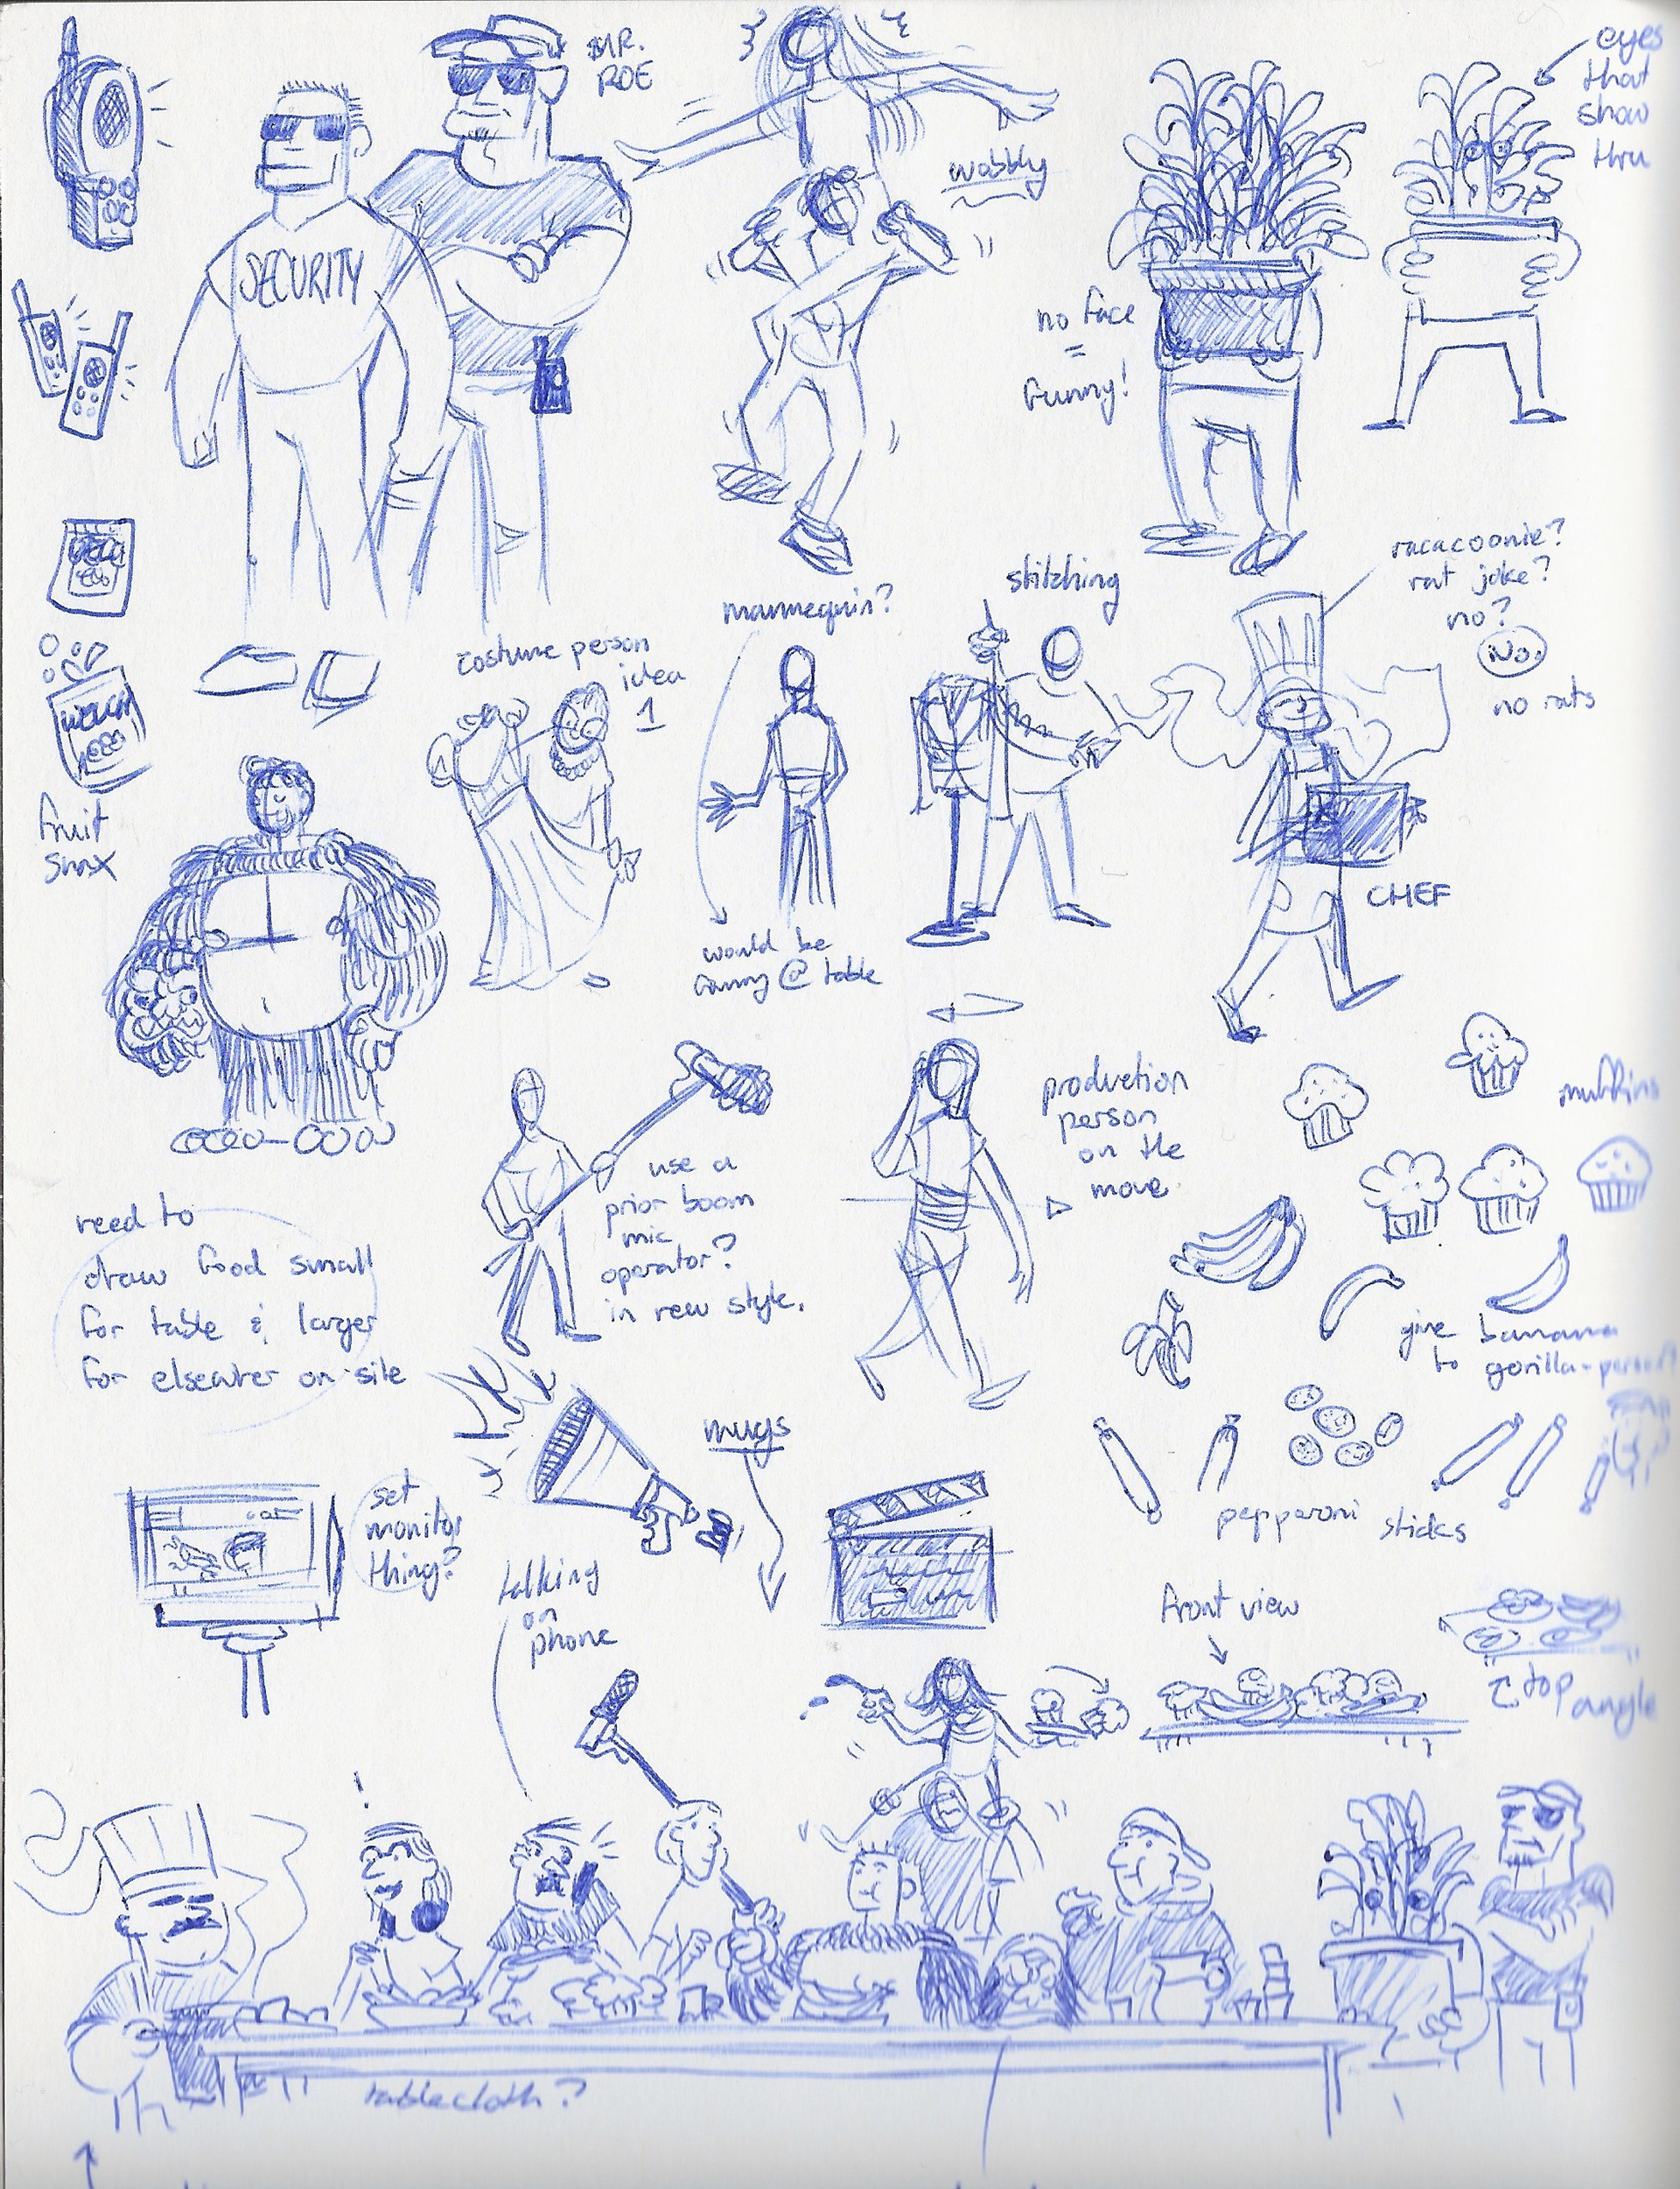 MR.
ROE
SECURITY
wobbly
eyes
that
show
thru
no face
=
funny!
mannequin?
stitching
racacoonie?
rat joke?
no?
No.
no rats
costume person
idea
1
fruit
snax
would be
funny @ table
CHEF
production
person
on the
move
muffins
use a
prior boom
mic
operator?
in new style.
need to
draw food small
for table & larger
for elsewher on site
give banana
to gorilla-person
mugs
pepperoni sticks
set
monitor
thing?
talking
on
phone
front view
top
angle
!
tablecloth?